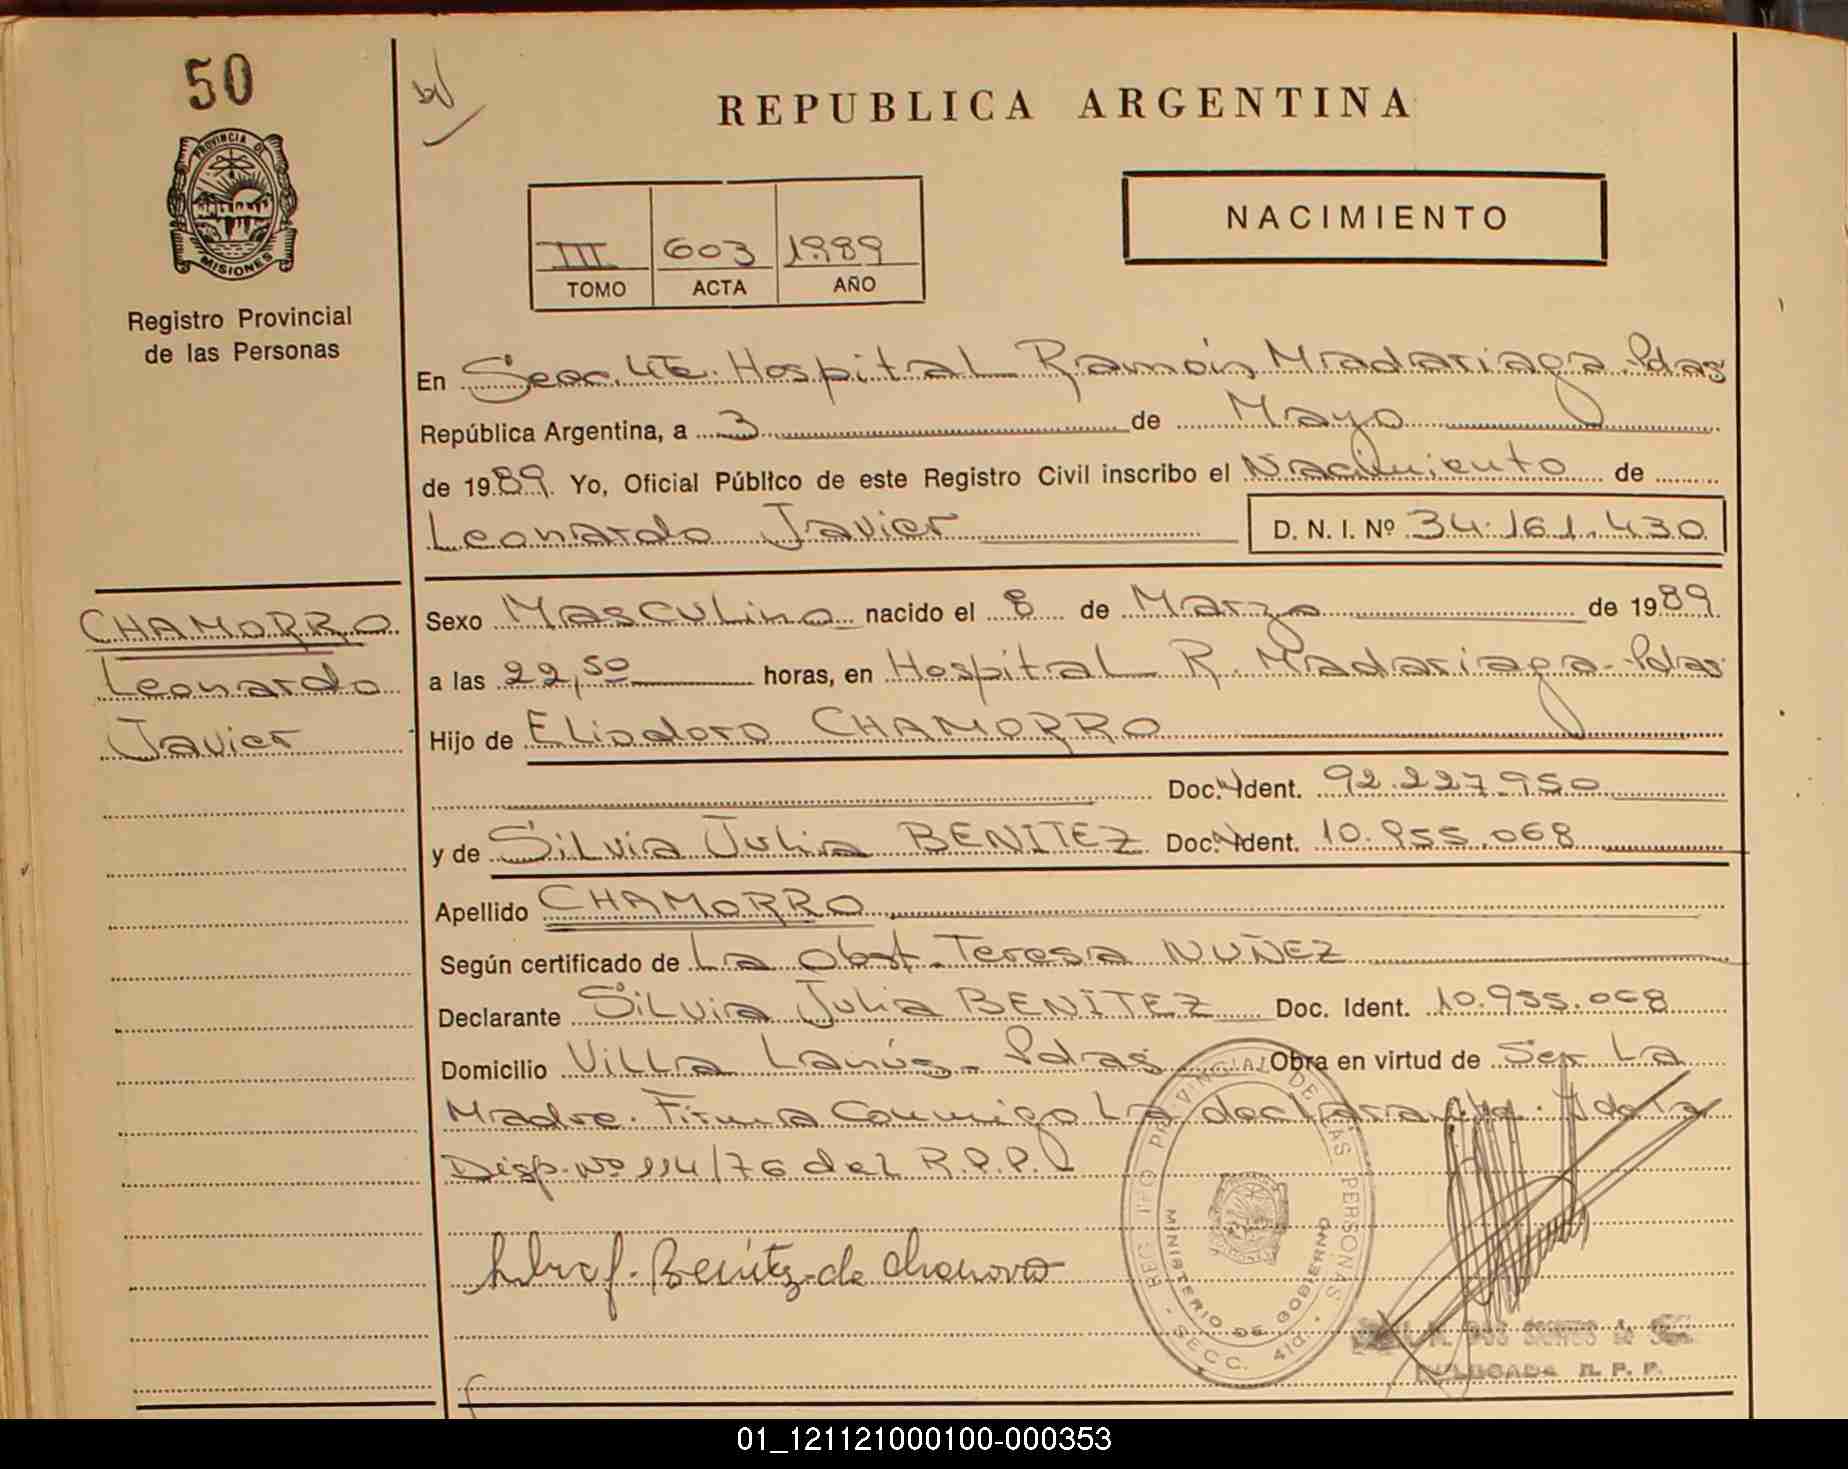 50
REPUBLICA ARGENTINA
PROVINCIA DE
MISIONES
Registro Provincial
de las Personas
NACIMIENTO
III 603 1989
TOMO ACTA AÑO
En Secc. 4ta. Hospital Ramón Madariaga-Pdas
República Argentina, a 3 de Mayo
de 1989. Yo, Oficial Público de este Registro Civil inscribo el Nacimiento de
Leonardo Javier D. N. I. Nº 34.161.430
CHAMORRO
Leonardo
Javier
Sexo Masculino nacido el 8 de Marzo de 1989
a las 22,50 horas, en Hospital R. Madariaga-Pdas
Hijo de Eliodoro CHAMORRO
Doc. Ident. 92.227.950
y de Silvia Julia BENITEZ Doc. Ident. 10.955.068
Apellido CHAMORRO
Según certificado de La Obst. Teresa NUÑEZ
Declarante Silvia Julia BENITEZ Doc. Ident. 10.955.068
Domicilio Villa Lanús- Pdas Obra en virtud de Ser La
Madre. Firma Conmigo La declarante.
Disp. Nº 114/76 del R.P.P.
Benítez de
REGISTRO PROVINCIAL DE LAS PERSONAS
MINISTERIO DE GOBIERNO
SECC. 4ta.
DELEGADA R. P. P.
01_121121000100-000353